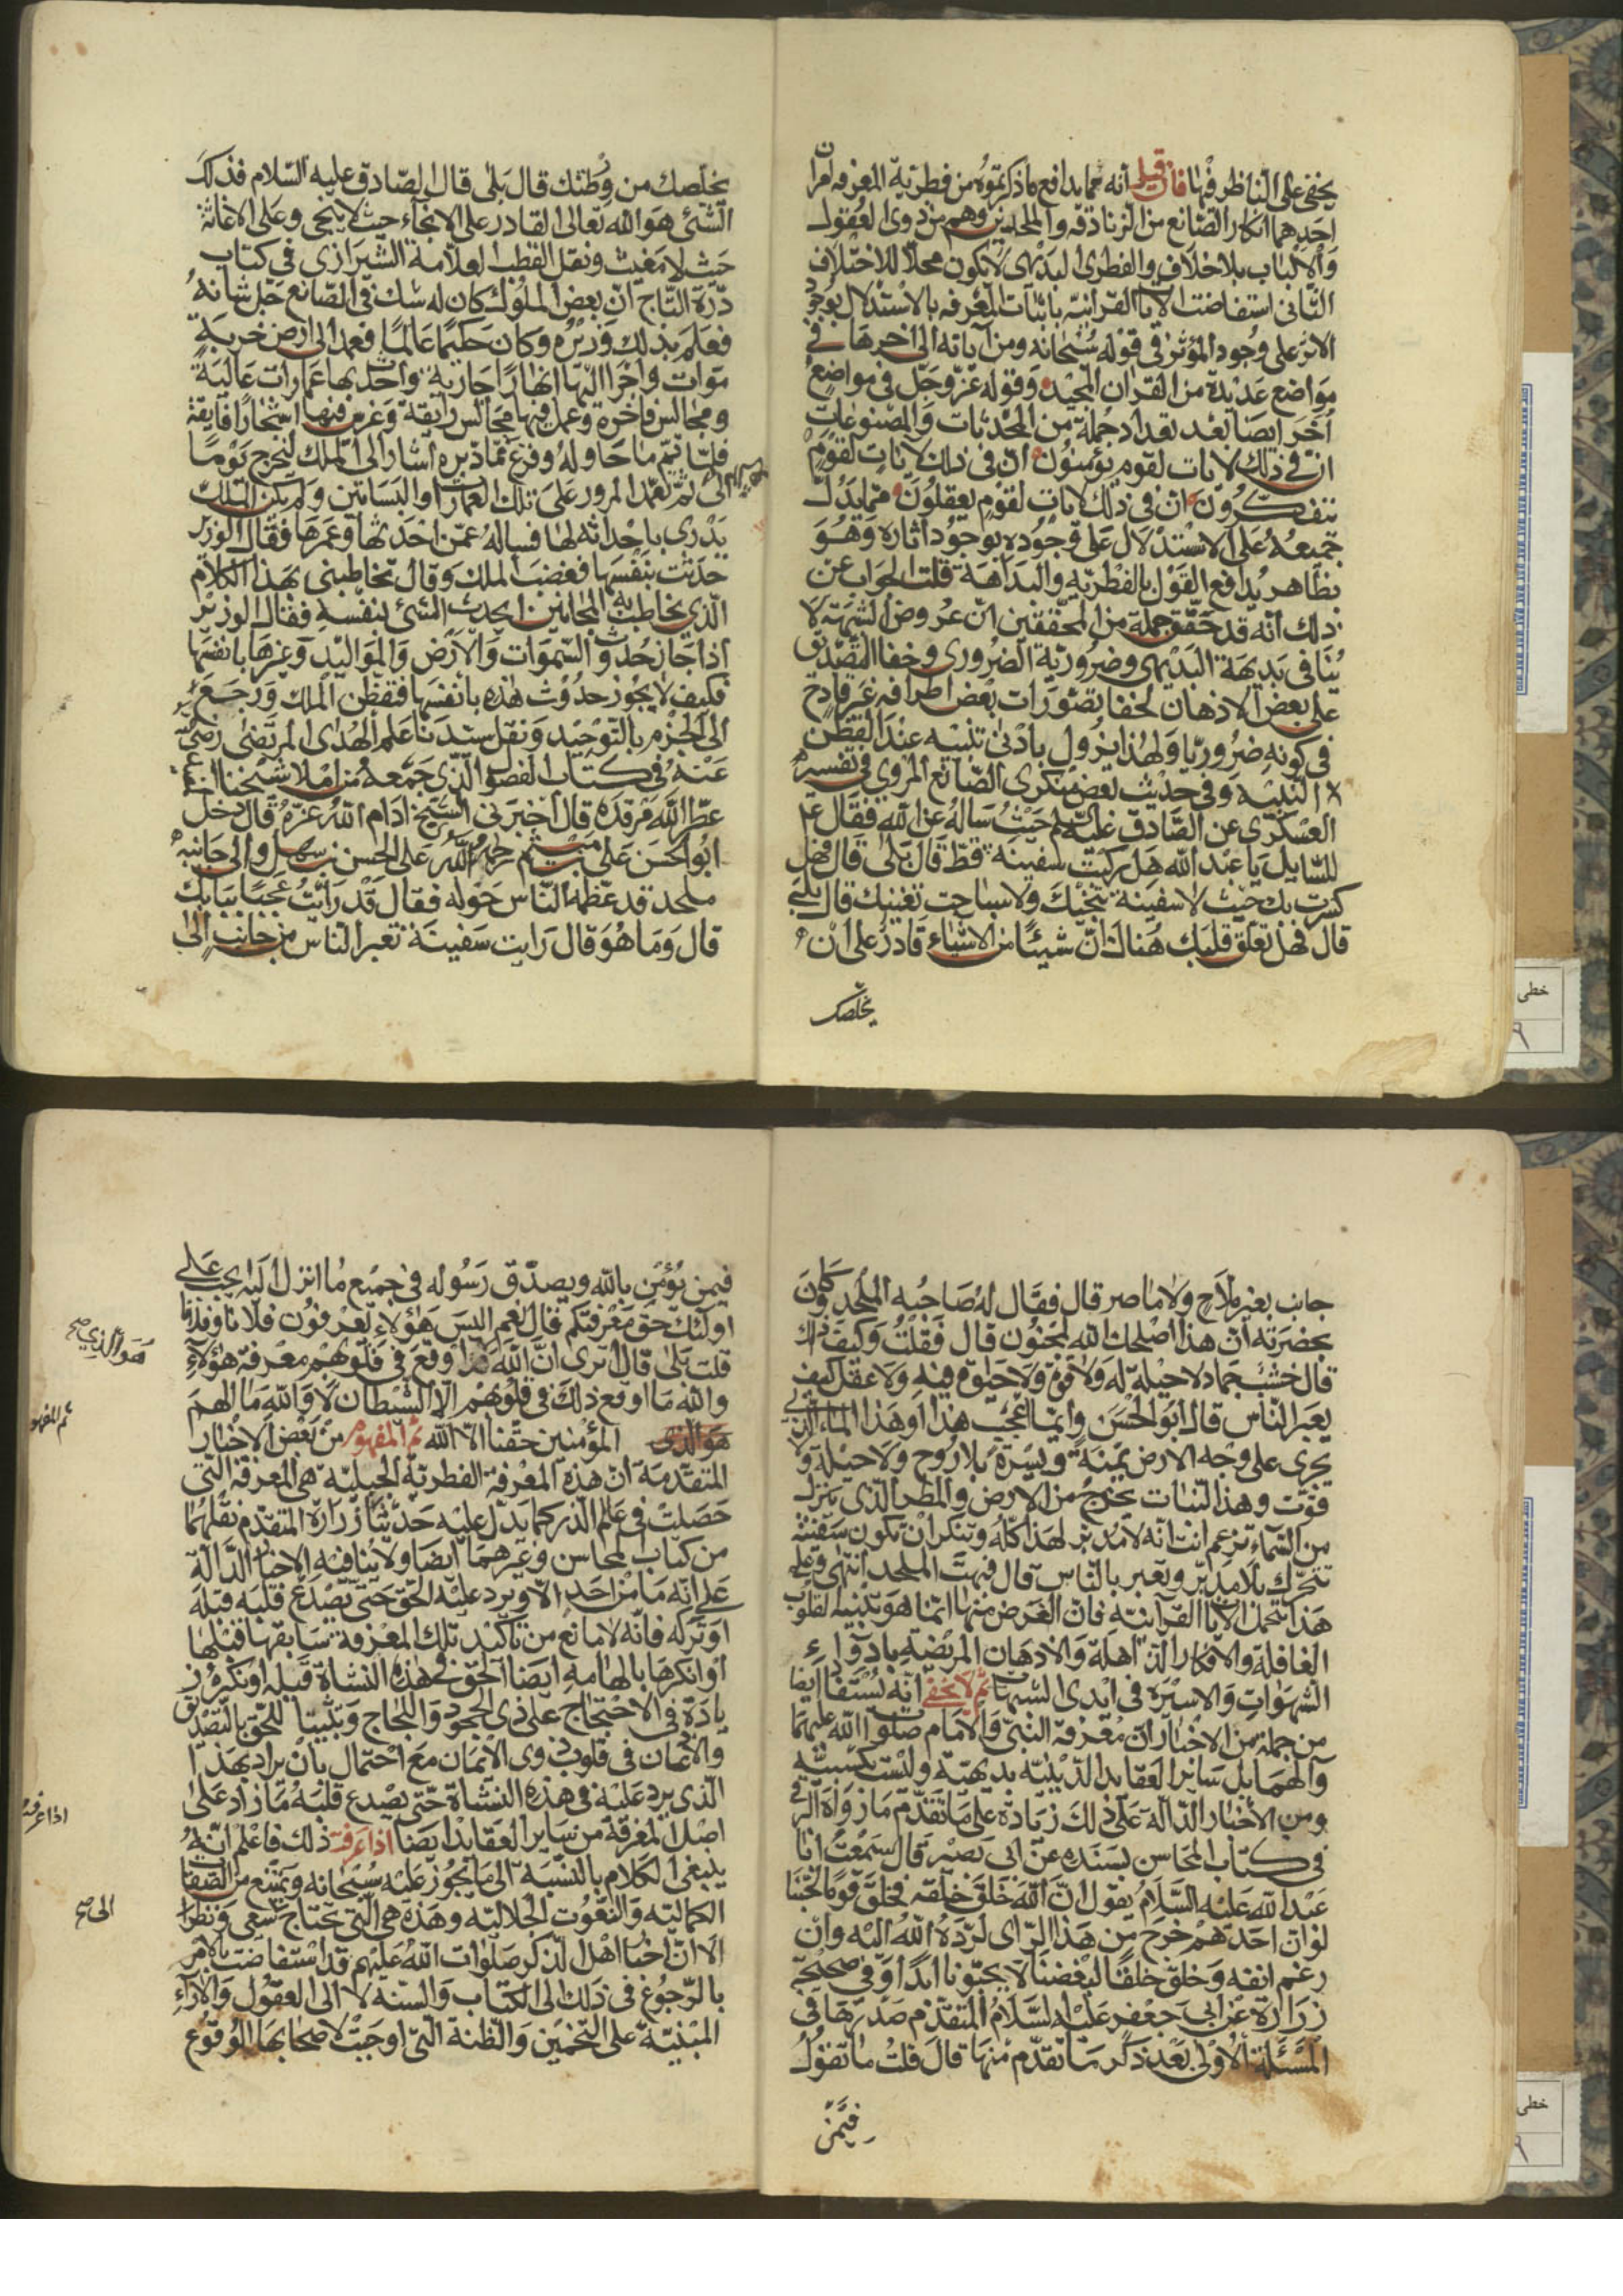 يخفى على الناظر فيها فان قيل انه مما يدافع ما ذكرتموه من فطرية المعرفه امران
احدهما انكار الصانع من الزنادقه والملحدين وهم من ذوى العقول
والالباب بلا خلاف والفطرى البديهى لا يكون محلا للاختلاف
الثانى استفاضت الايات القرانيه باثبات المعرفه بالاستدلال بوجود
الاثر على وجود المؤثر فى قوله سبحانه ومن آياته الى اخرها فى
مواضع عديدة من القران المجيد وقوله عز وجل فى مواضع
أخر ايضا بعد تعداد جملة من المحدثات والمصنوعات
ان فى ذلك لايات لقوم يؤمنون ان فى ذلك لايات لقوم
يتفكرون ان فى ذلك لايات لقوم يعقلون مما يدل
جميعه على الاستدلال على وجوده بوجود آثاره وهو
بظاهر يدافع القول بالفطريه والبداهة قلت الجواب عن
ذلك انه قد حقق جملة من المحققين ان عروض الشبهة لا
ينافى بديهة البديهى وضرورية الضرورى وخفا التصديق
على بعض الاذهان لخفا تصورات بعض اطرافه غير قادح
فى كونه ضروريا ولهذا يزول بادنى تنبيه عند الفطن
النبيه وفى حديث بعض منكرى الصانع المروي فى تفسير
العسكرى عن الصادق عليه السلم حيث ساله عن الله فقال ع
للسايل يا عبد الله هل ركبت سفينة قط قال بلى قال فهل
كسرت بك حيث لا سفينة تنجيك ولا سباحت تغنيك قال بلى
قال فهل تعلق قلبك هناك ان شيئا من الاشياء قادر على ان
يخلصك
يخلصك من ورطتك قال بلى قال الصادق عليه السلام فذلك
الشئ هو الله تعالى القادر على الانجاء حيث لا ينجى وعلى الاغاثة
حيث لا مغيث ونقل القطب العلامة الشيرازى فى كتاب
درة التاج ان بعض الملوك كان له شك فى الصانع جل شانه
فعلم بذلك وزيره وكان حكيما عالما فعمد الى ارض خربة
موات واجرا اليها انهارا جارية واحدث بها عمارات عالية
ومجالس فاخرة وعمل فيها مجالس رايقة وغرس فيها اشجارا فايقة
فلما تم ما حاوله وفرغ مما دبره اشار الى الملك ليخرج يوما
الى ثم تعمد المرور على تلك العمارات والبساتين ولم يكن الملك
يدرى باحداثه لها فساله عمن احدثها وعمرها فقال الوزير
حدثت بنفسها فغضب الملك وقال تخاطبنى بهذا الكلام
الذى يخاطب به المجانين ايحدث الشئ بنفسه فقال الوزير
اذا جاز حدوث السموات والارض والمواليد وغيرها بانفسها
فكيف لا يجوز حدوث هذه بانفسها فتفطن الملك ورجع
الى الجزم بالتوحيد ونقل سيدنا علم الهدى المرتضى رضى
عنه فى كتاب الفصول الذى جمعه من املا شيخنا المفيد
عطر الله مرقده قال اخبرنى الشيخ ادام الله عزه قال دخل
ابو الحسن على بن ميثم رحمه الله على الحسن بن سهل والى جانبه
ملحد قد عظمه الناس حوله فقال قد رايت عجبا ببابك
قال وما هو قال رايت سفينة تعبر الناس من جانب الى
جانب بغير ملاح ولا ماصر قال فقال له صاحبه الملحد وكان
بحضرته ان هذا اصلحك الله لمجنون قال فقلت وكيف ذاك
قال خشب جماد لا حيلة له ولا قوة ولا حيوة فيه ولا عقل كيف
يعبر الناس قال ابو الحسن وايما اعجب هذا او هذا الماء الذي
يجرى على وجه الارض يمنة ويسرة بلا روح ولا حيلة ولا
قوت وهذا النبات يخرج من الارض والمطر الذى ينزل
من السماء تزعم انت انه لا مدبر لهذا كله وتنكر ان تكون سفينة
تتحرك بلا مدبر وتعبر بالناس قال فبهت الملحد انتهى وعلى
هذا تحمل الايات القرآنيه فان الغرض منها انما هو تنبيه القلوب
الغافلة والافكار الذاهلة والاذهان المريضة بادواء
الشهوات والاسيرة فى ايدى الشبهات ثم لا يخفى انه يستفاد ايضا
من جملة من الاخبار ان معرفة النبى والامام صلوات الله عليهما
وآلهما بل ساير العقايد الدينيه بديهية وليست كسبيه
ومن الاخبار الدالة على ذلك زيادة على ما تقدم ما رواه البرقى
فى كتاب المحاسن بسنده عن ابى بصير قال سمعت ابا
عبد الله عليه السلام يقول ان الله خلق خلقه فخلق قوما لحبنا
لو ان احدهم خرج من هذا الراى لرده الله اليه وان
رغم انفه وخلق خلقا لبغضنا لا يحبونا ابدا وفى صحيحة
زرارة عن ابى جعفر عليه السلام المتقدم صدرها فى
المسئلة الاولى بعد ذكر ما تقدم منها قال قلت ما تقول
فيمن
فيمن يؤمن بالله ويصدق رسوله فى جميع ما انزل اليه يجب على
اولئك حق معرفتكم قال نعم اليس هؤلاء يعرفون فلانا وفلانا
قلت بلى قال اترى ان الله هو الذي اوقع فى قلوبهم معرفة هؤلاء
والله ما اوقع ذلك فى قلوبهم الا الشيطان لا والله ما الهم
المؤمنين حقنا الا الله ثم المفهوم من بعض الاخبار
المتقدمة ان هذه المعرفة الفطرية الجبلية هى المعرفة التى
حصلت فى عالم الذر كما يدل عليه حديثا زرارة المتقدم نقلهما
من كتاب المحاسن وغيرهما ايضا ولا ينافيه الاخبار الدالة
على انه ما من احد الا ويرد عليه الحق حتى يصدع قلبه قبله
او تركه فانه لا مانع من تاكيد تلك المعرفة سابقها قبلها
او انكرها بالهامه ايضا الحق فى هذه النشاة قبله او نكره ز
يادة فى الاحتجاج على ذى الجحود واللجاج وتثبيتا للحق بالتصديق
والاذعان فى قلوب ذوى الايمان مع احتمال بان يراد بهذا
الذى يرد عليه فى هذه النشاة حتى يصدع قلبه ما زاد على
اصل المعرفة من ساير العقايد ايضا اذا عرفت ذلك فاعلم انه
ينبغى الكلام بالنسبة الى ما يجوز عليه سبحانه ويمتنع من الصفات
الكمالية والنعوت الجلالية وهذه هى التى تحتاج سعى ونظر
الا ان اخبار اهل الذكر صلوات الله عليهم قد استفاضت بالامر
بالرجوع فى ذلك الى الكتاب والسنة لا الى العقول والآراء
المبنية على التخمين والظنة التى اوجبت لاصحابها الوقوع
هو الذي صح
ثم المفهوم
اذا عرفت
الى صح
خطى
٩
خطى
٩